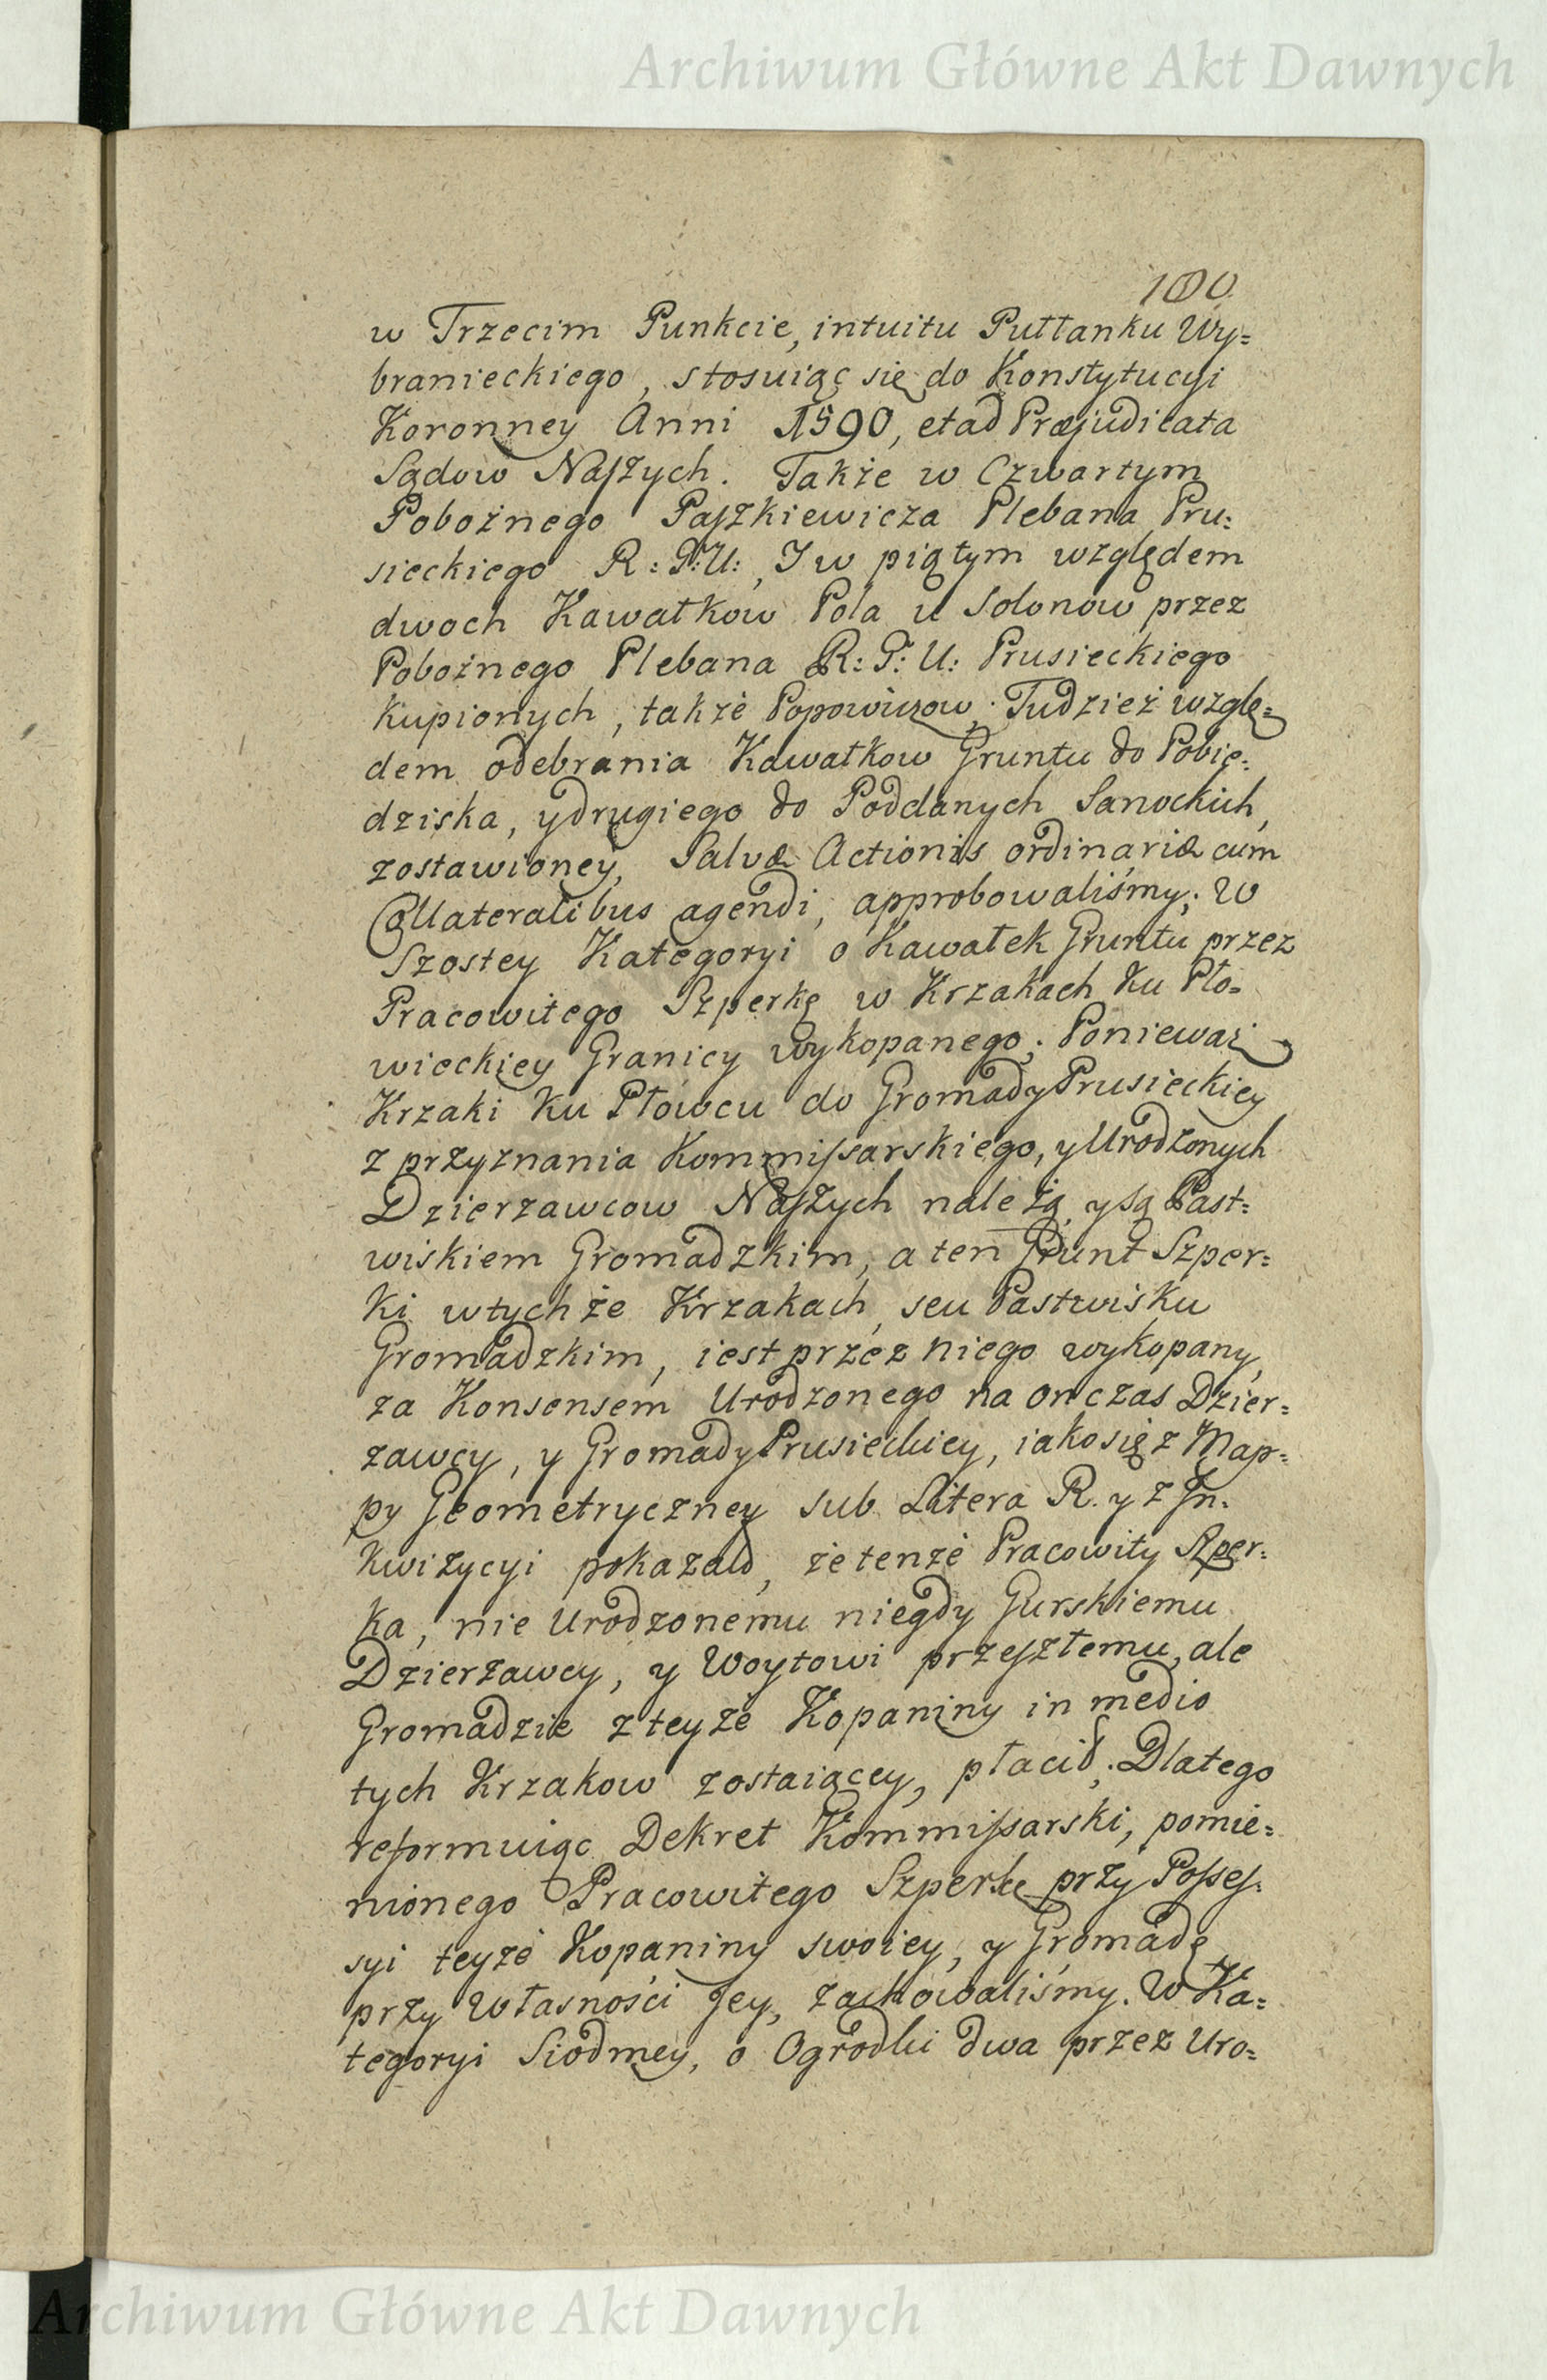 Archiwum Główne Akt Dawnych
100.
w Trzecim Punkcie, intuitu Pułłanku Wy=
branieckiego, stosuiąc się do Konstytucyi
Koronney Anni 1590, et ad Præjudicata
Sądow Naszych. Także w Czwartym
Pobożnego Paszkiewicza Plebana Pru:
sieckiego R: P: U:, J w piątym względem
dwoch Kawałkow Pola u Solonow przez
Pobożnego Plebana R: P: U: Prusieckiego
kupionych, także Popowiczow; Tudzież wzglę=
dem odebrania Kawałkow Gruntu do Pobie:
dziska, y drugiego do Poddanych Sanockich,
zostawioney, Salvæ Actionis ordinariæ cum
Collateralibus agendi, approbowaliśmy; W
Szostey Kategoryi o Kawałek Gruntu przez
Pracowitego Szperkę w Krzakach ku Pło=
wieckiey Granicy wykopanego; Ponieważ
Krzaki ku Płowcu do Gromady Prusieckiey
z przyznania Kommissarskiego, y Urodzonych
Dzierzawcow Naszych należą, y są Past=
wiskiem Gromadzkim, a ten Grunt Szper=
ki w tychże Krzakach, seu Pastwisku
Gromadzkim, iest przez niego wykopany,
za Konsensem Urodzonego na onczas Dzier=
zawcy, y Gromady Prusieckiey, iako się z Map=
py Geometryczney sub Litera R. y z Jn=
kwizycyi pokazało, że tenże Pracowity Szper=
ka, nie Urodzonemu niegdy Gurskiemu
Dzierzawcy, y Woytowi przeszłemu, ale
Gromadzie z teyże Kopaniny in medio
tych Krzakow zostaiącey, płacił; Dlatego
reformuiąc Dekret Kommissarski, pomie=
nionego Pracowitego Szperkę przy Posses=
syi teyże Kopaniny swoiey, y Gromadę
przy Własności Jey, zachowaliśmy. W Ka=
tegoryi Siodmey, o Ogrodki dwa przez Uro=
Archiwum Główne Akt Dawnych